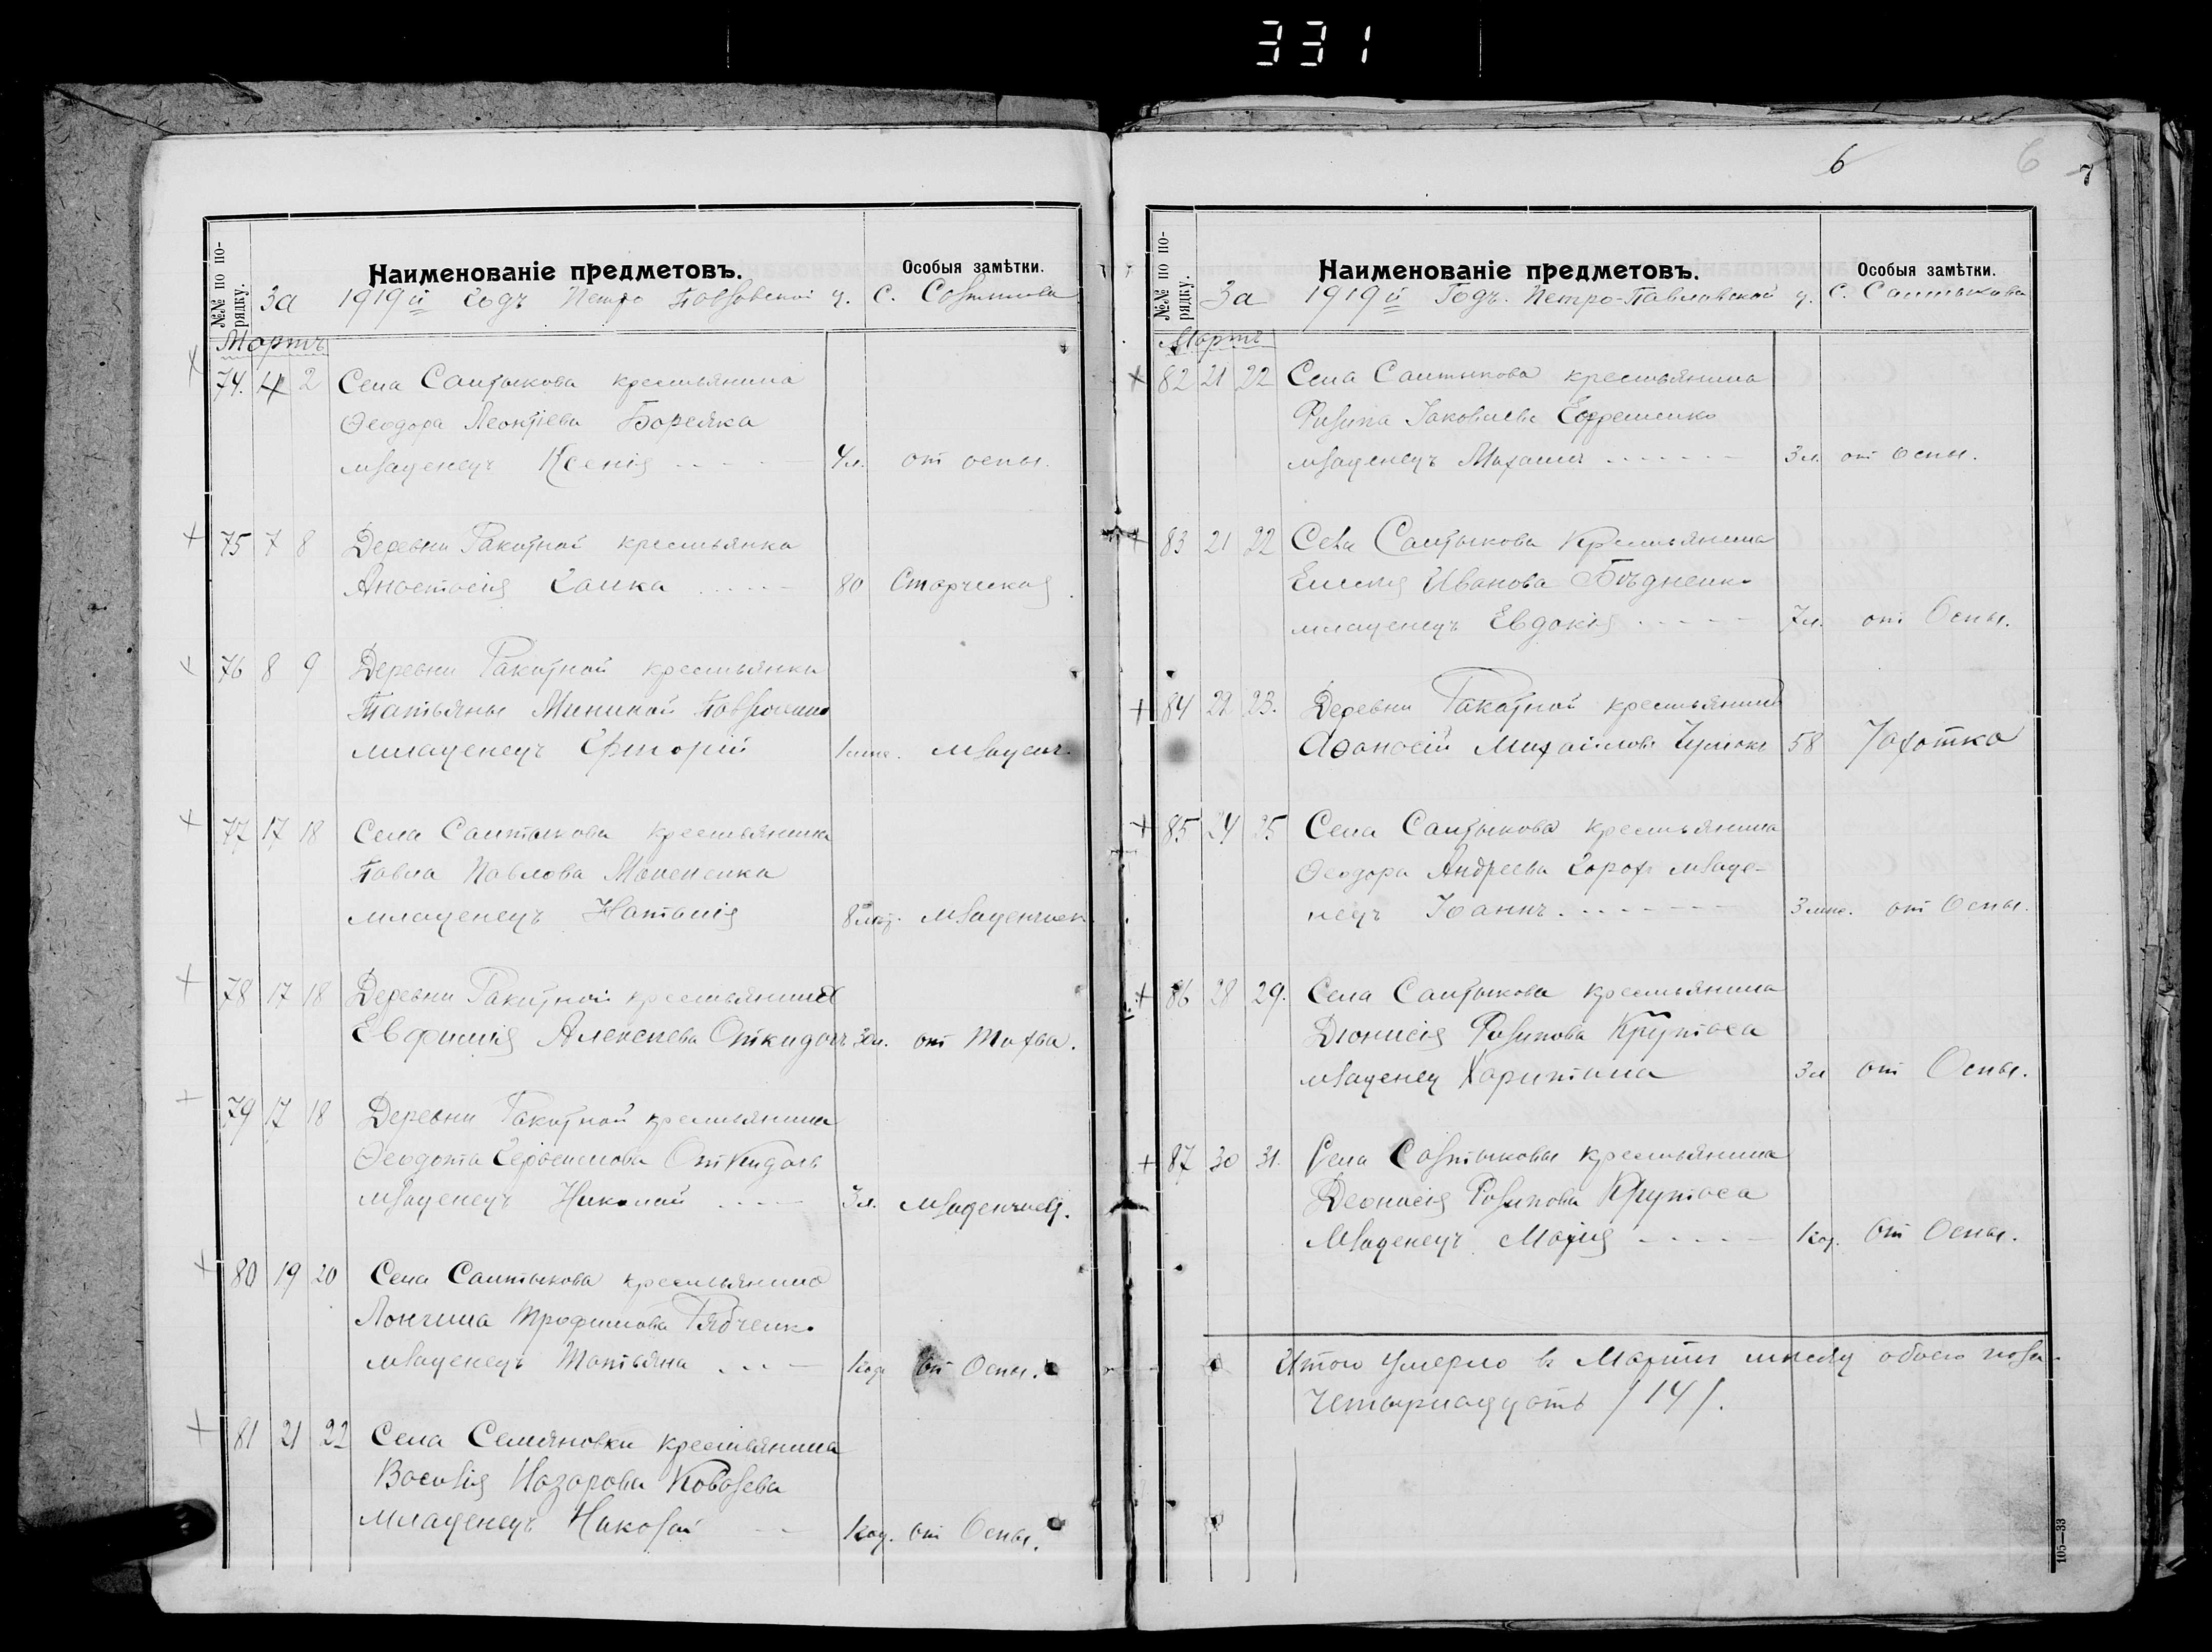 331
№№ по порядку.
Наименованіе предметовъ.
Особыя замѣтки.
За 1919й годъ Петро Павловской ц. с. Салтыкова
Мартъ
74. 1 2 Села Салтыкова крестьянина
Ѳеодора Леонтіева Борейка
младенецъ Ксенія 4л. от оспы.
75 7 8 Деревни Ракитной крестьянка
Анастасія Галка 80 Старческая
76 8 9 Деревни Ракитной крестьянки
Татьяны Мининой
младенецъ Григорій младенч.
77 17 18 Села Салтыкова крестьянина
Павла Павлова
младенецъ Наталія младенческ
78 17 18 Деревни Ракитной крестьянина
Евфимія Алексѣева Откидачъ от Тифа.
79 17 18 Деревни Ракитной крестьянина
Ѳеодота Откидачъ
младенецъ Николай 3л. младенческ.
80 19 20 Села Салтыкова крестьянина
Лонгина Трофимова Рябченко
младенецъ Татьяна 1год от Оспы.
81 21 22 Села Семяновки крестьянина
Василія Назарова Ковалева
младенецъ Николай 1год. от Оспы.
6 6 7
№№ по порядку.
Наименованіе предметовъ.
Особыя замѣтки.
За 1919й Годъ. Петро-Павловской ц. с. Салтыкова
Мартъ
82 21 22 Села Салтыкова крестьянина
Филипа Іаковлева Ефременко
младенецъ Михаилъ 3л. от оспы.
83 21 22 Села Салтыкова Крестьянина
Иванова Бѣдненко
младенецъ Евдокія 7л. от Оспы.
84 22 23. Деревни Ракитной крестьянинъ
Аѳанасій Михайловъ 58 Чахотка
85 24 25 Села Салтыкова крестьянина
Ѳеодора Андреева Горохъ младе-
нецъ Іоаннъ 3 мѣс. от Оспы.
86 28 29. Села Салтыкова крестьянина
Діонисія Филипова Крутоса
младенец Харитина 3л от Оспы.
87 30 31. Села Салтыкова крестьянина
Деонисія Филипова Крутоса
Младенецъ Марія 1год. От Оспы.
Итого умерло в Мартѣ мѣсяцѣ обоего пола
четырнадцать /14/.
105—33